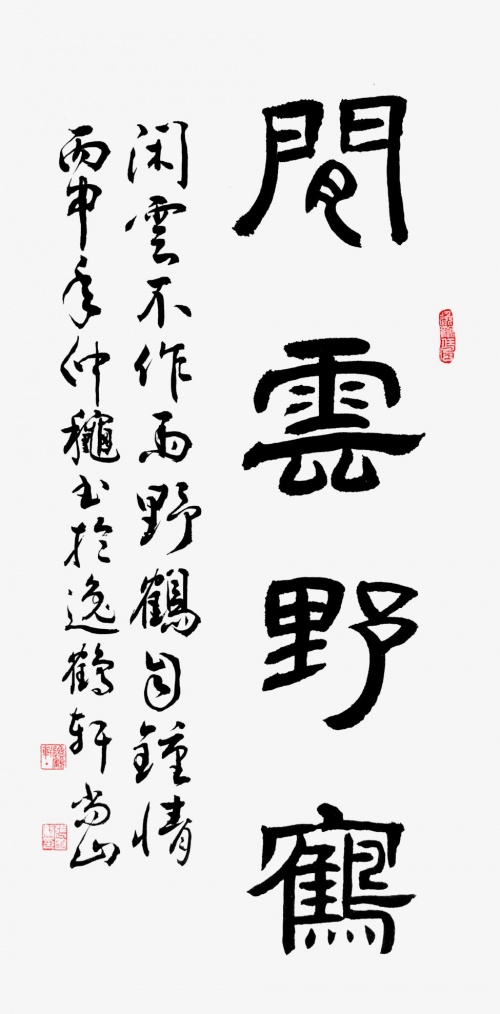 閒雲野鶴
閑雲不作雨野鶴自鍾情
丙申年仲龝書於逸鶴軒尚山